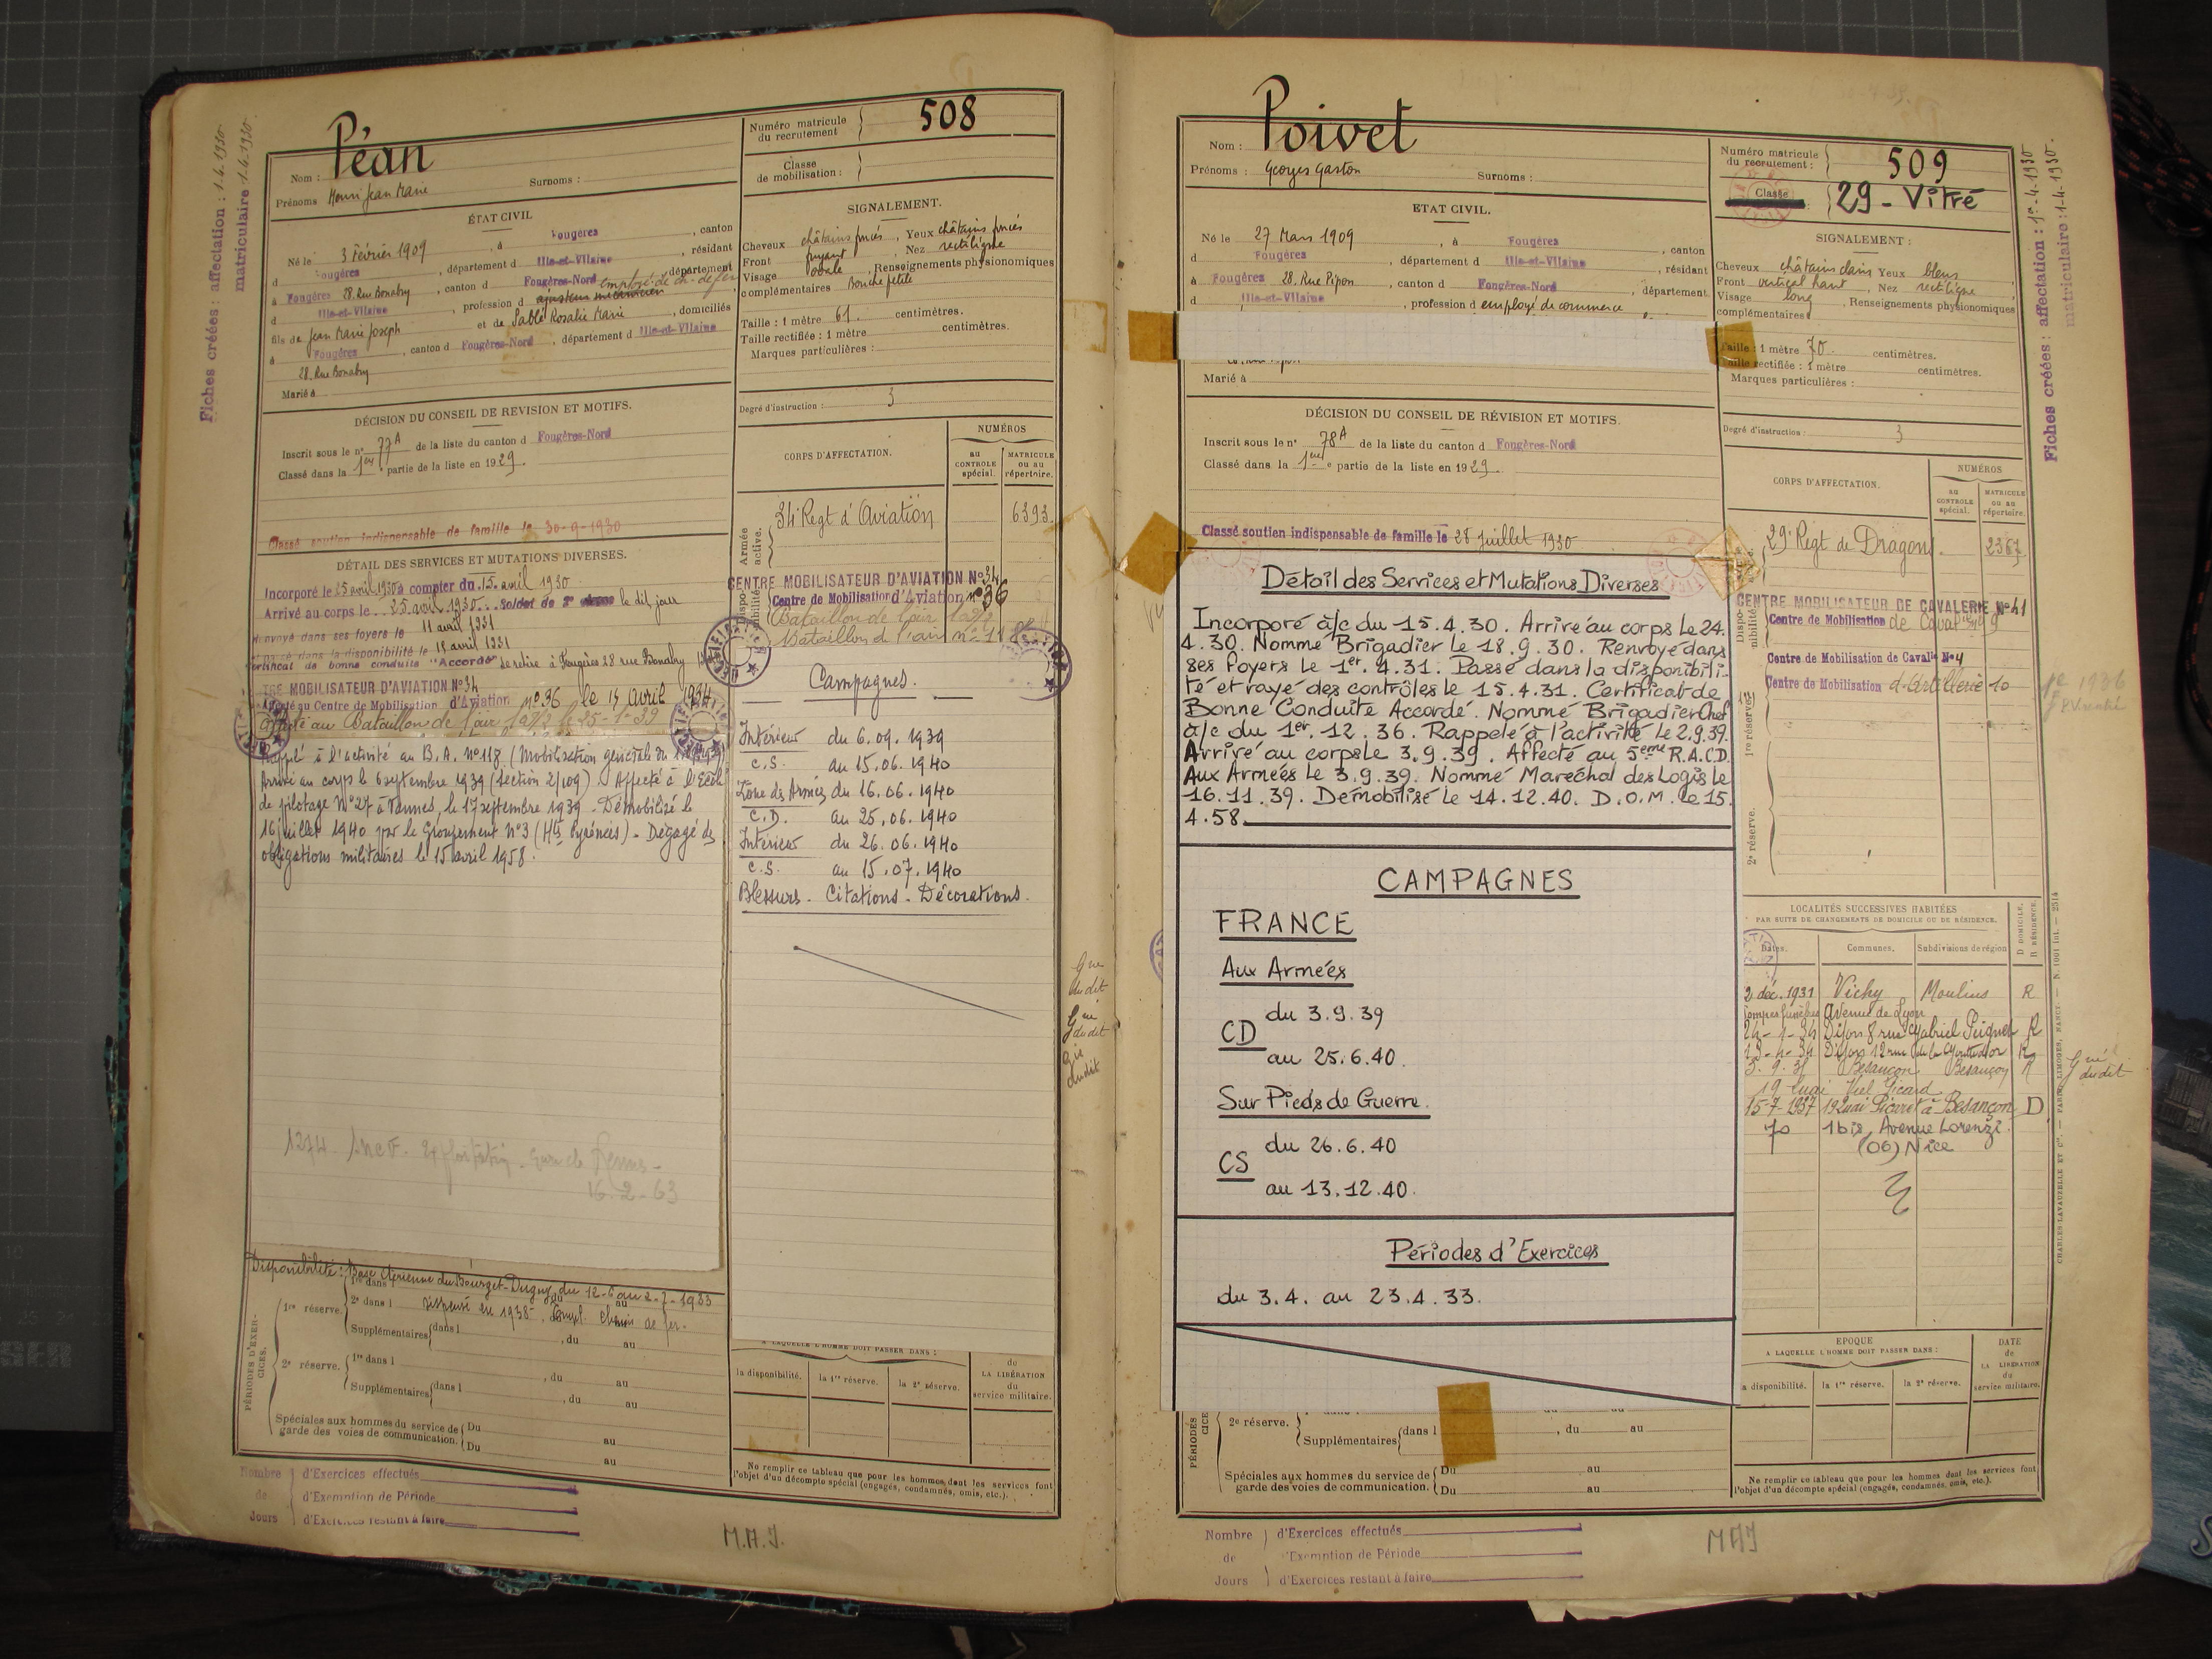 Fiches créées : affectation : 1.4.1930
matriculaire 1.4.1930.
Péan
Nom :
Prénoms Henri Jean Marie
Surnoms :
ÉTAT CIVIL
Né le 3 Février 1909, à Fougères, canton
d Fougères, département d Ille-et-Vilaine, résidant
à Fougères 28. Rue Bonabry, canton d Fougères-Nord, département
d Ille-et-Vilaine, profession d ajusteur mécanicien employé de ch. de fer
fils de Jean Marie Joseph et de Sablé Rosalie Marie, domiciliés
à Fougères, canton d Fougères-Nord, département d Ille-et-Vilaine
28. Rue Bonabry
Marié à
DÉCISION DU CONSEIL DE RÉVISION ET MOTIFS.
Inscrit sous le n° 77A de la liste du canton d Fougères-Nord
Classé dans la 1ère partie de la liste en 1929.
Classé soutien indispensable de famille le 30-9-1930
DÉTAIL DES SERVICES ET MUTATIONS DIVERSES.
Incorporé le 25 avril 1930 à compter du 15 avril 1930
Arrivé au corps le 25 avril 1930 soldat de 2e classe le dit jour
Renvoyé dans ses foyers le 11 avril 1931
dans la disponibilité le 15 avril 1931
Certificat de bonne conduite "Accordé" Se retire à Fougères 28 rue Bonabry
CENTRE MOBILISATEUR D'AVIATION N°34
Affecté au Centre de Mobilisation d'Aviation n°36 le 15 avril 1934
Affecté au Bataillon de l'air 1
Rappelé à l'activité au B.A. N°118 (Mobilisation générale du
Arrivé au corps le 6 septembre 1939 (section 2/109) Affecté à l'École
de pilotage N°27 à Vannes, le 17 septembre 1939 - Démobilisé le
16 juillet 1940 par le Groupement n°3 (Htes Pyrénées) - Dégagé des
obligations militaires le 15 avril 1958.
1274
16-2-63
Disponibilité : Base Aérienne du Bourget-Dugny du 12-6 au 2-7-1933
PÉRIODES D'EXERCICES.
1re réserve.
1re dans l
2e dans l
dispensé en 1938 Empl. chemin de fer.
Supplémentaires dans l , du au
2e réserve.
1re dans l , du au
Supplémentaires dans l , du au
Spéciales aux hommes du service de garde des voies de communication.
Du au
Du au
Nombre de Jours
d'Exercices effectués
d'Exemption de Période
d'Exercices restant à faire
Numéro matricule du recrutement 508
Classe de mobilisation :
SIGNALEMENT.
Cheveux châtains foncés, Yeux châtains foncés
Front fuyant Nez rectiligne
Visage ovale, Renseignements physionomiques
complémentaires Bouche petite
Taille : 1 mètre 61. centimètres.
Taille rectifiée : 1 mètre centimètres.
Marques particulières :
Degré d'instruction : 3
CORPS D'AFFECTATION.
NUMÉROS
au CONTROLE spécial.
MATRICULE ou au répertoire.
Armée active.
34 Regt d'Aviation 6393.
Disponibilité
CENTRE MOBILISATEUR D'AVIATION N°34
Centre de Mobilisation d'Aviation n°36
Bataillon de l'air
Bataillon de l'air n° 118
Campagnes.
Intérieur du 6.09.1939
C.S. au 15.06.1940
Zone des Armées du 16.06.1940
C.D. au 25.06.1940
Intérieur du 26.06.1940
C.S. au 15.07.1940
Blessures - Citations - Décorations.
A LAQUELLE L'HOMME DOIT PASSER DANS :
la disponibilité.
la 1re réserve.
la 2e réserve.
de LA LIBÉRATION du service militaire.
Ne remplir ce tableau que pour les hommes dont les services font
l'objet d'un décompte spécial (engagés, condamnés, omis, etc.).
M.A.J.
Poivet
Nom :
Prénoms : Georges Gaston
Surnoms :
ETAT CIVIL.
Né le 27 Mars 1909, à Fougères, canton
d Fougères, département d Ille-et-Vilaine, résidant
à Fougères 28. Rue Pipon, canton d Fougères-Nord, département
d Ille-et-Vilaine, profession d employé de commerce
Marié à
DÉCISION DU CONSEIL DE RÉVISION ET MOTIFS.
Inscrit sous le n° 78A de la liste du canton d Fougères-Nord
Classé dans la 1ère partie de la liste en 1929.
Classé soutien indispensable de famille le 28 Juillet 1930
Détail des Services et Mutations Diverses
Incorporé à/c du 15.4.30. Arrivé au corps le 24.
4.30. Nommé Brigadier le 18.9.30. Renvoyé dans
ses foyers le 1er.4.31. Passé dans la disponibili-
té et rayé des contrôles le 15.4.31. Certificat de
Bonne Conduite Accordé. Nommé Brigadier Chef
à/c du 1er.12.36. Rappelé à l'activité le 2.9.39.
Arrivé au corps le 3.9.39. Affecté au 5ème R.A.C.D.
Aux Armées le 3.9.39. Nommé Maréchal des Logis le
16.11.39. Démobilisé le 14.12.40. D.O.M. le 15.
4.58.
CAMPAGNES
FRANCE
Aux Armées
du 3.9.39
CD
au 25.6.40.
Sur Pieds de Guerre.
du 26.6.40
CS
au 13.12.40.
Périodes d'Exercices
du 3.4. au 23.4.33.
PÉRIODES
2e réserve.
Supplémentaires dans l , du au
Spéciales aux hommes du service de garde des voies de communication.
Du au
Du au
Nombre de Jours
d'Exercices effectués
d'Exemption de Période
d'Exercices restant à faire
Numéro matricule du recrutement : 509
Classe 29 - Vitré
SIGNALEMENT :
Cheveux châtains clairs Yeux bleus
Front vertical haut, Nez rectiligne
Visage long, Renseignements physionomiques
complémentaires
Taille : 1 mètre 70. centimètres.
Taille rectifiée : 1 mètre centimètres.
Marques particulières :
Degré d'instruction : 3
CORPS D'AFFECTATION.
NUMÉROS
au CONTROLE spécial.
MATRICULE ou au répertoire.
29e Regt de Dragons 2367
Disponibilité
CENTRE MOBILISATEUR DE CAVALERIE N°41
Centre de Mobilisation de Cavalerie 9
Centre de Mobilisation de Cavalie N°4
Centre de Mobilisation d'Artillerie 10
1re réserve.
2e réserve.
LOCALITÉS SUCCESSIVES HABITÉES
PAR SUITE DE CHANGEMENTS DE DOMICILE OU DE RÉSIDENCE.
Dates.
Communes.
Subdivisions de région
D DOMICILE.
R RÉSIDENCE.
2 déc. 1931 Vichy Moulins R
Pompes funèbres Avenue de Lyon
Dijon 8 rue Gabriel Peignot R
Dijon 12 rue R
Besançon Besançon R
19 Quai Veil Picard
15-7-1937 19 Quai Picard à Besançon D
70 1 bis, Avenue Lorenzi.
(06) Nice
EPOQUE
A LAQUELLE L'HOMME DOIT PASSER DANS :
DATE de LA LIBÉRATION du service militaire.
la disponibilité.
la 1re réserve.
la 2e réserve.
Ne remplir ce tableau que pour les hommes dont les services font
l'objet d'un décompte spécial (engagés, condamnés, omis, etc.).
MAJ
Fiches créées : affectation : 1er.4.1930
matriculaire : 1-4-1930.
CHARLES-LAVAUZELLE ET Cie. — PARIS, LIMOGES, NANCY.